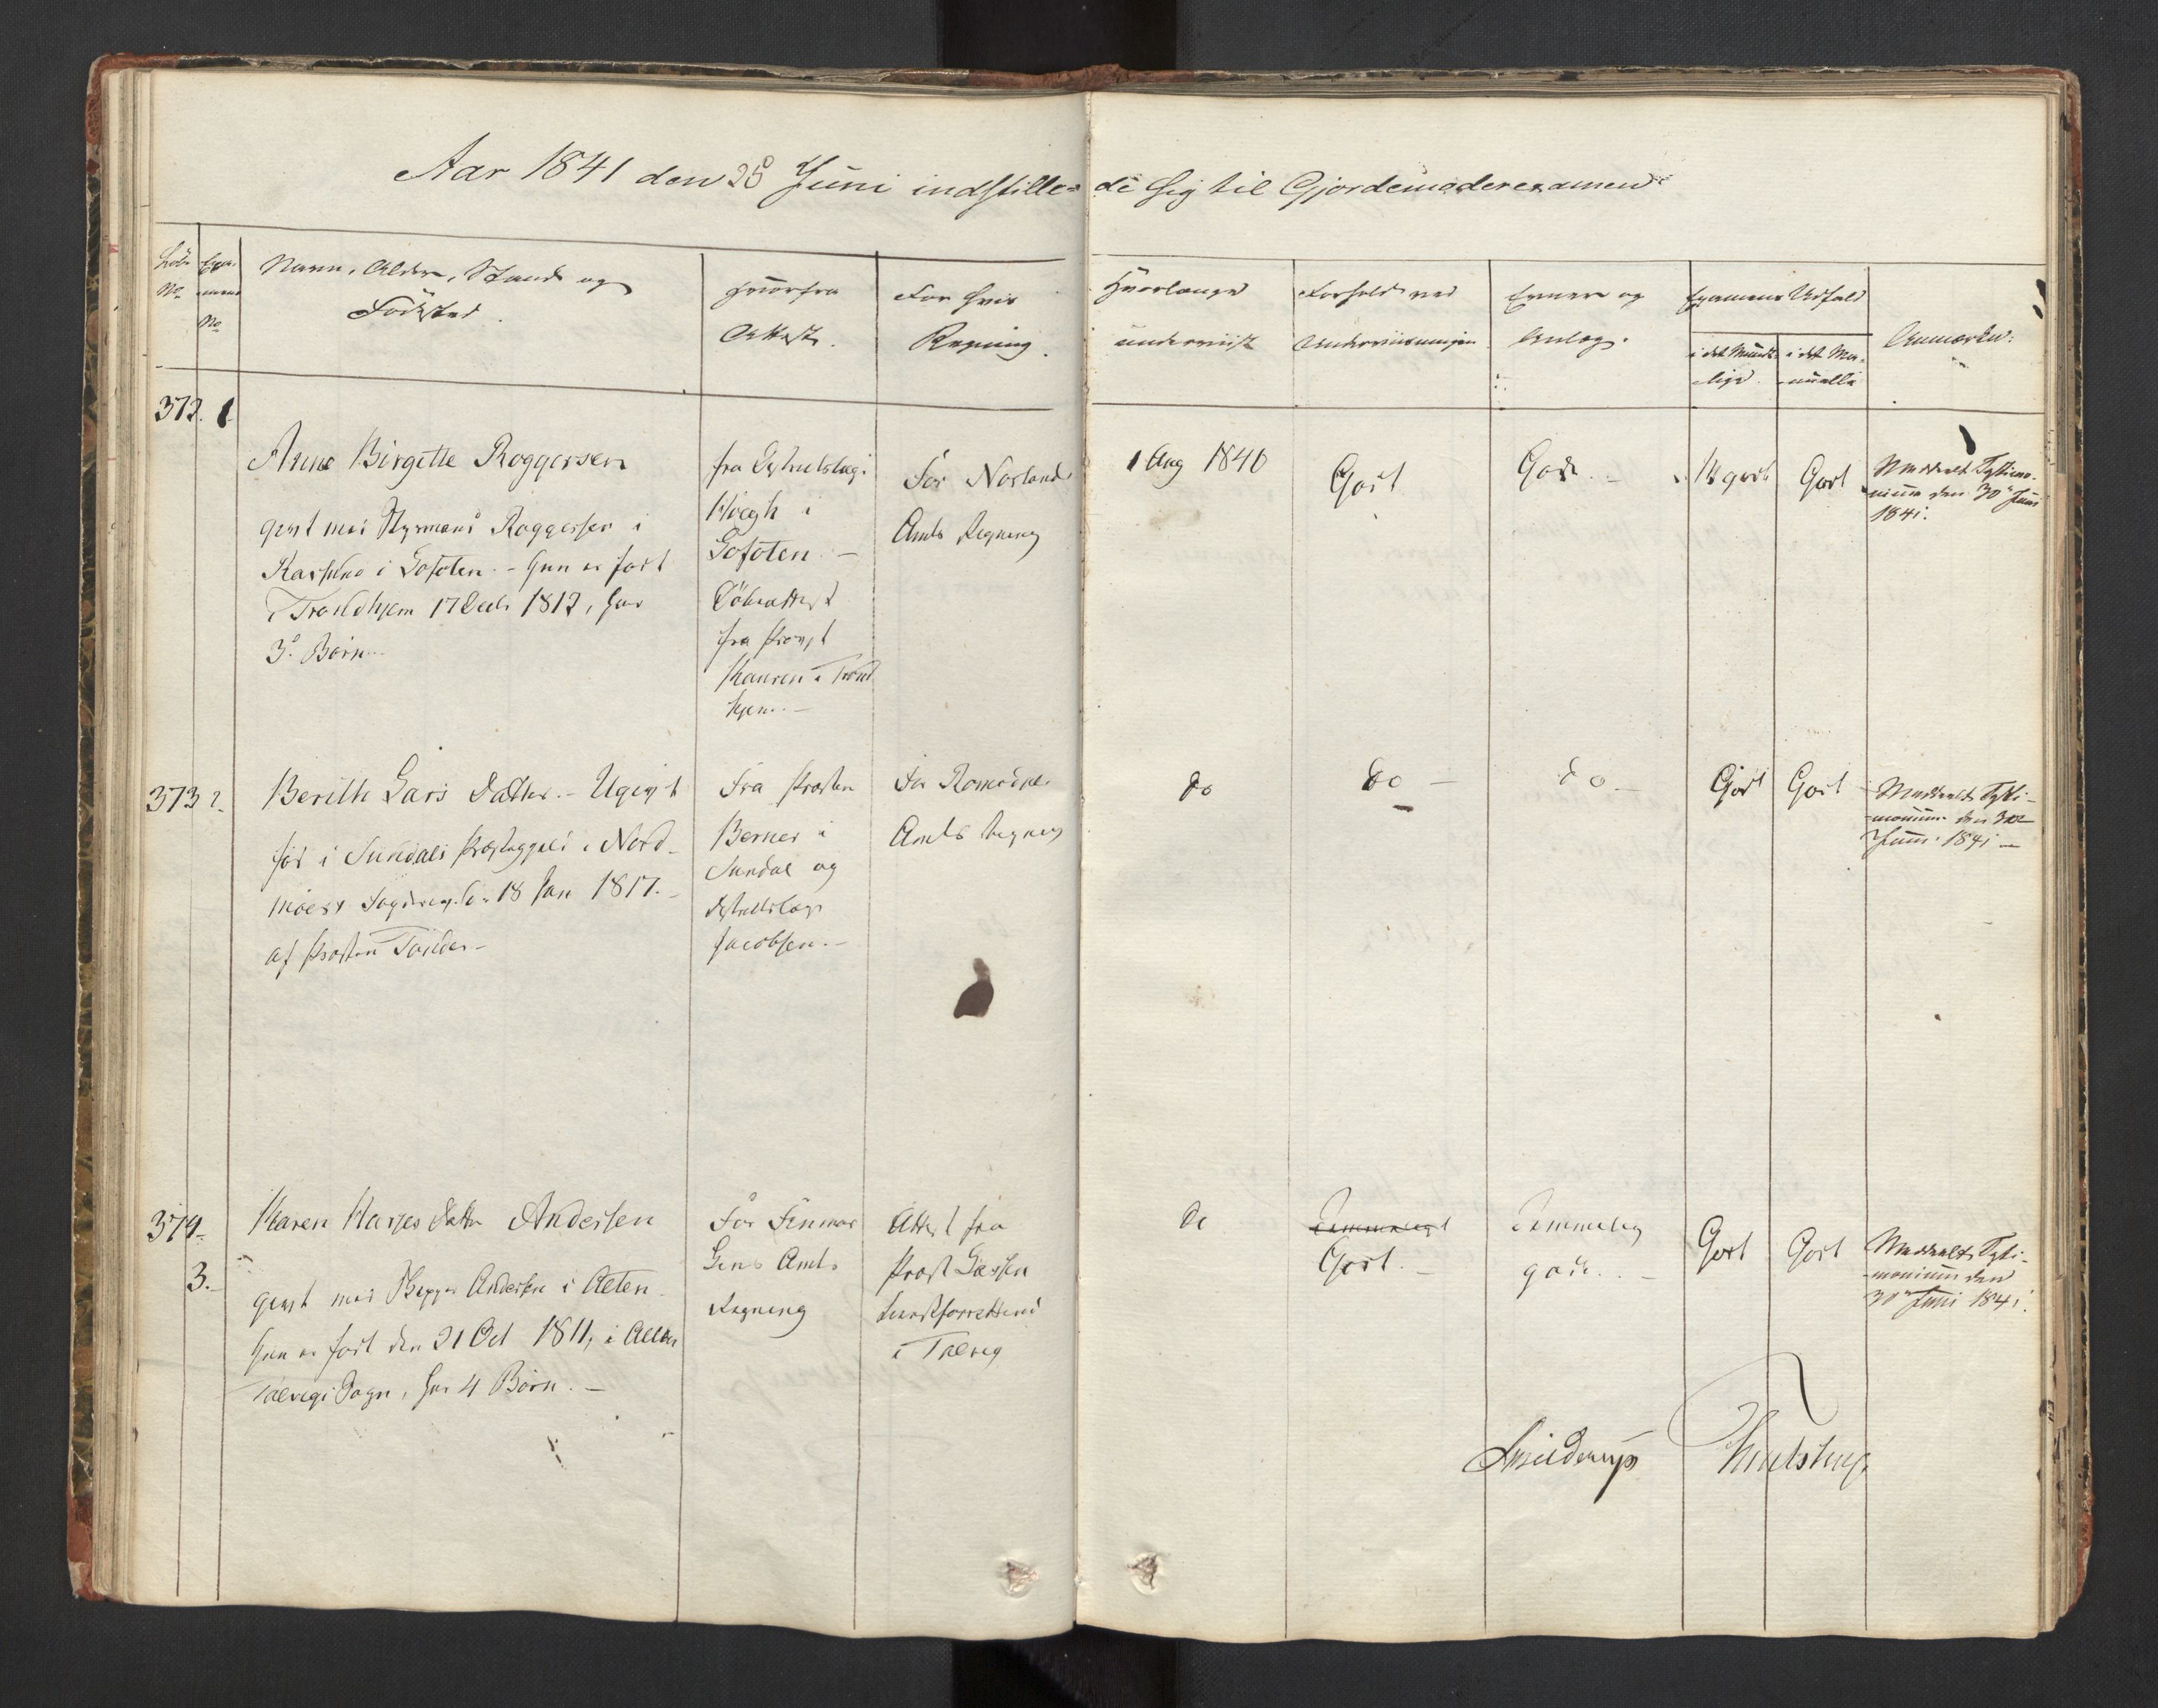 Aar 1841 den 28 Juni indstille=de sig til Gjordemoderexamen
Löbe No
Exa-mens No
Navn, Alder, Stand og
Födested.
Hvorfra
Attest.
For hvis
Regning.
Hvorlænge
underviist
Forhold ved
Underviisningen
Evner og
Anlæg.
Examens Udfald
i det Mundt-
lige.
i det Ma-
nuelle
Anmærkn:
372. 1
Anne Birgitte Roggersen
givt med Styrmand Roggersen i
i Lofoten. - Hun er født
i Trondhjem 17 Decb 1812, har
3 Børn
fra Districtslæge
i
Lofoten. -
Döbeattest
fra Provst
i Trond
hjem. -
For Norlands
Amts Regning
1 Aug 1840
Godt
Gode. -
godt
Godt
Meddeelt Testimo-
nium den 30 Juni
1841.
373 2.
Berithe Lars Datter. - Ugivt
fød i Sundals Præstegjeld i Nord-
möers Fogderie d. 18 Jan 1817. -
af Præsten Tønder -
Fra Præsten
Berner i
Sundal og
Districtslæge
Jacobsen. -
For Romsdals
Amts Regning
do
do -
do -
Godt
Godt
Meddeelt Testi-
monium den 30
Juni 1841 -
374.
3.
Karen Datter Andersen
givt med Andersen i Alten
hun er født den 21 Oct 1811, i Alten
Talvigs Sogn, har 4 Børn. -
For Finmar
kens Amts
Regning
Attest fra
Provst
i Talvig
do
Temmelig
Godt. -
Temmelig
gode. -
Godt
Godt
Meddeelt Testi-
monium den
30 Juni 1841.